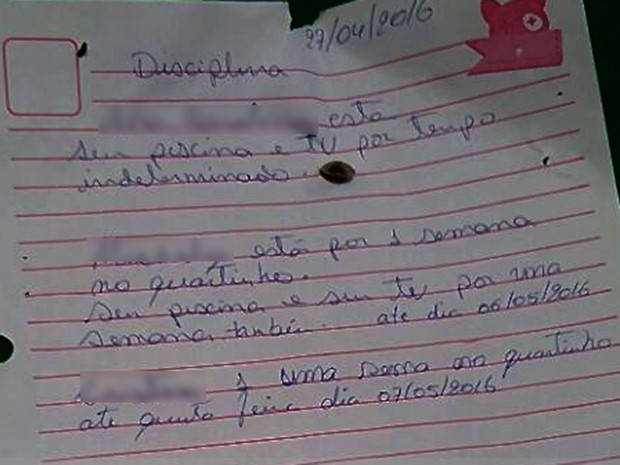 27/04/2016
Disciplina
está
sem piscina e TV por tempo
indeterminado.
está por 1 semana
no quartinho.
sem piscina e sem TV por uma
semana também. até dia 06/05/2016
1 uma no quartinho
até quinta feira dia 07/05/2016